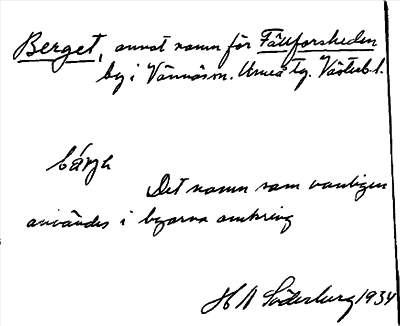 Berget, annat namn för Fällforsheden
by i Vännäs sn. Umeå tg. Västerb. l.
bárjh
Det namn som vanligen
användes i byarna omkring
H A Söderburg 1934